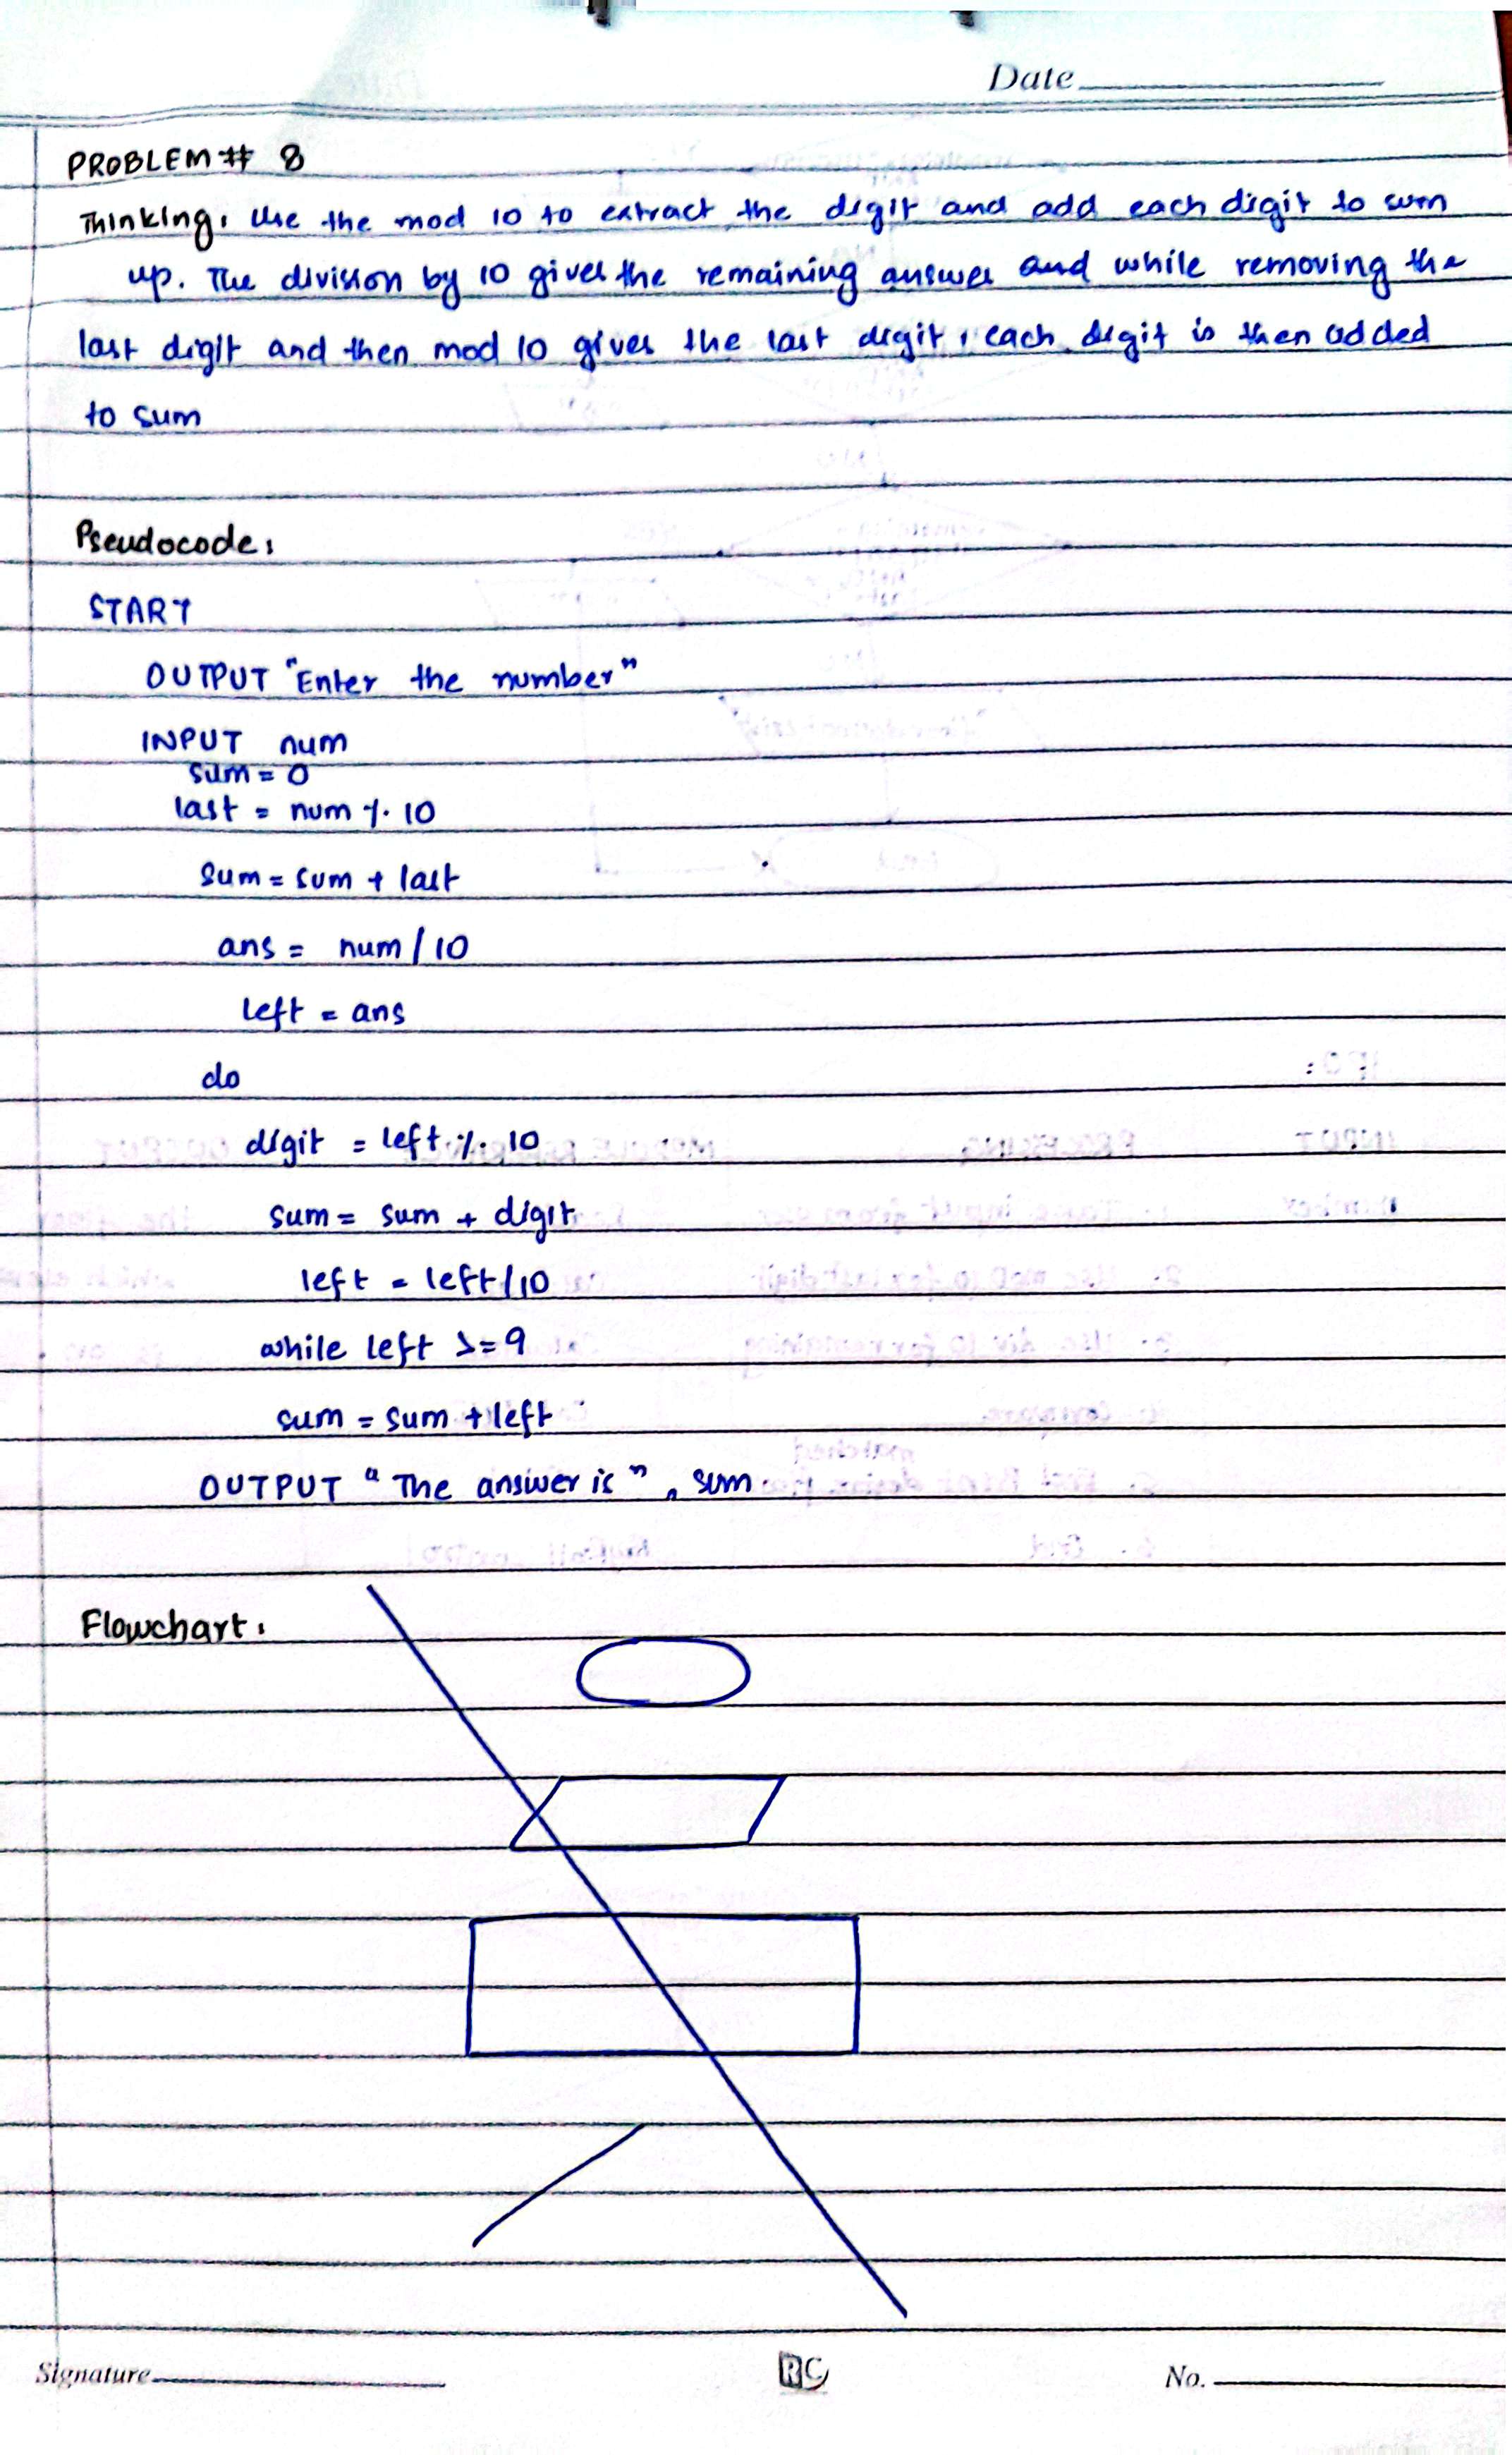 Date
PROBLEM # 8
Thinking: Use the mod 10 to extract the digit and add each digit to sum
up. The division by 10 gives the remaining answer and while removing the
last digit and then mod 10 gives the last digit, each digit is then added
to sum
Pseudocode:
START
OUTPUT "Enter the number"
INPUT num
sum = 0
last = num % 10
sum = sum + last
ans = num / 10
left = ans
do
digit = left % 10
sum = sum + digit
left = left/10
while left >= 9
sum = sum + left
OUTPUT "The answer is", sum
Flowchart:
Signature
RC
No.